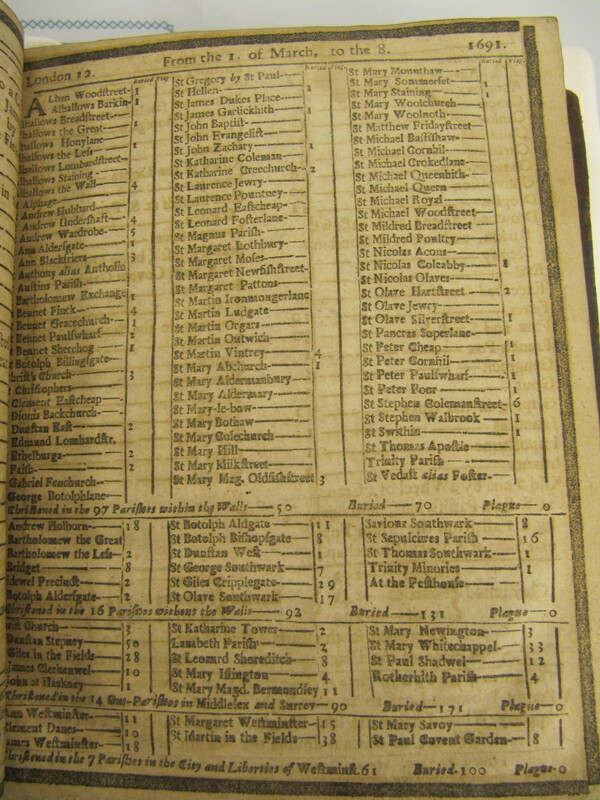 London 12. From the 1. of March, to the 8. 1691.
Buried Plag.
Alban Woodstreet 1
Alhallows Barkin 1
hallows Breadstreet
hallows the Great 1
hallows Honylane
hallows the Less 1
hallows Lombardstreet
hallows Staining
hallows the Wall 4
Alphage
Andrew Hubbard
Andrew Undershaft 4
Andrew Wardrobe 5
Ann Aldersgate 1
Ann Blackfriers 3
Anthony alias Antholin
Austins Parish
Bartholomew Exchange 1
Bennet Finck 4
Bennet Gracechurch 1
Bennet Paulswharf 2
Bennet Sherehog 1
Botolph Billingsgate
hrist's Church 3
Christophers
Clement Eastcheap
Dionis Backchurch
Dunstan East 2
Edmund Lombardstr.
Ethelburga 2
Faith 2
Gabriel Fenchurch
George Botolphlane
Buried Plag.
St Gregory by St Paul
St Hellen 1
St James Dukes Place
St James Garlickhith 1
St John Baptist
St John Evangelist
St John Zachary 1
St Katharine Coleman
St Katharine Creechurch 2
St Laurence Jewry
St Laurence Pountney
St Leonard Eastcheap
St Leonard Fosterlane
St Magnus Parish
St Margaret Lothbury
St Margaret Moses
St Margaret Newfishstreet
St Margaret Pattons
St Martin Ironmongerlane
St Martin Ludgate
St Martin Orgars
St Martin Outwich
St Martin Vintrey 4
St Mary Abchurch 1
St Mary Aldermanbury
St Mary Aldermary
St Mary-le-bow
St Mary Bothaw
St Mary Colechurch
St Mary Hill
St Mary Milkstreet
St Mary Mag. Oldfishstreet 3
Buried Plag.
St Mary Mounthaw
St Mary Somerset 1
St Mary Staining 1
St Mary Woolchurch
St Mary Woolnoth
St Matthew Fridaystreet
St Michael Bassishaw
St Michael Cornhil
St Michael Crokedlane
St Michael Queenhith
St Michael Quern
St Michael Royal
St Michael Woodstreet
St Mildred Breadstreet
St Mildred Poultry
St Nicolas Acons
St Nicolas Coleabby 1
St Nicolas Olaves
St Olave Hartstreet 2
St Olave Jewry
St Olave Silverstreet 1
St Pancras Soperlane
St Peter Cheap 1
St Peter Cornhil 1
St Peter Paulswharf 1
St Peter Poor 1
St Stephen Colemanstreet 6
St Stephen Walbrook 1
St Swithin 1
St Thomas Apostle
Trinity Parish
St Vedast alias Foster
Christened in the 97 Parishes within the Walls 50 Buried 70 Plague 0
Andrew Holborn 18
Bartholomew the Great
Bartholomew the Less 2
Bridget 8
idewel Precinct 2
Dunstan West 1
St Botolph Aldgate 11
St Botolph Bishopsgate 8
St Dunstan West 1
St George Southwark 7
St Giles Cripplegate 29
St Olave Southwark 17
Saviour Southwark 8
St Sepulchres Parish 16
St Thomas Southwark 1
Trinity Minories 1
At the Pesthouse
Christened in the 16 Parishes without the Walls 92 Buried 131 Plague 0
Church 3
Dunstan Stepney 50
Giles in the Fields 28
James Clerkenwel 10
John at Hackney 1
St Katharine Tower 2
Lambeth Parish 2
St Leonard Shoreditch 8
St Mary Islington 4
St Mary Magd. Bermondsey 11
St Mary Newington 3
St Mary Whitechappel 33
St Paul Shadwel 12
Rotherhith Parish 4
Christened in the 14 Out-Parishes in Middlesex and Surrey 90 Buried 171 Plague 0
Ann Westminster 11
Clement Danes 10
James Westminster 18
St Margaret Westminster 15
St Martin in the Fields 38
St Mary Savoy
St Paul Covent Garden 8
Christened in the 7 Parishes in the City and Liberties of Westminst. 61 Buried 100 Plague 0